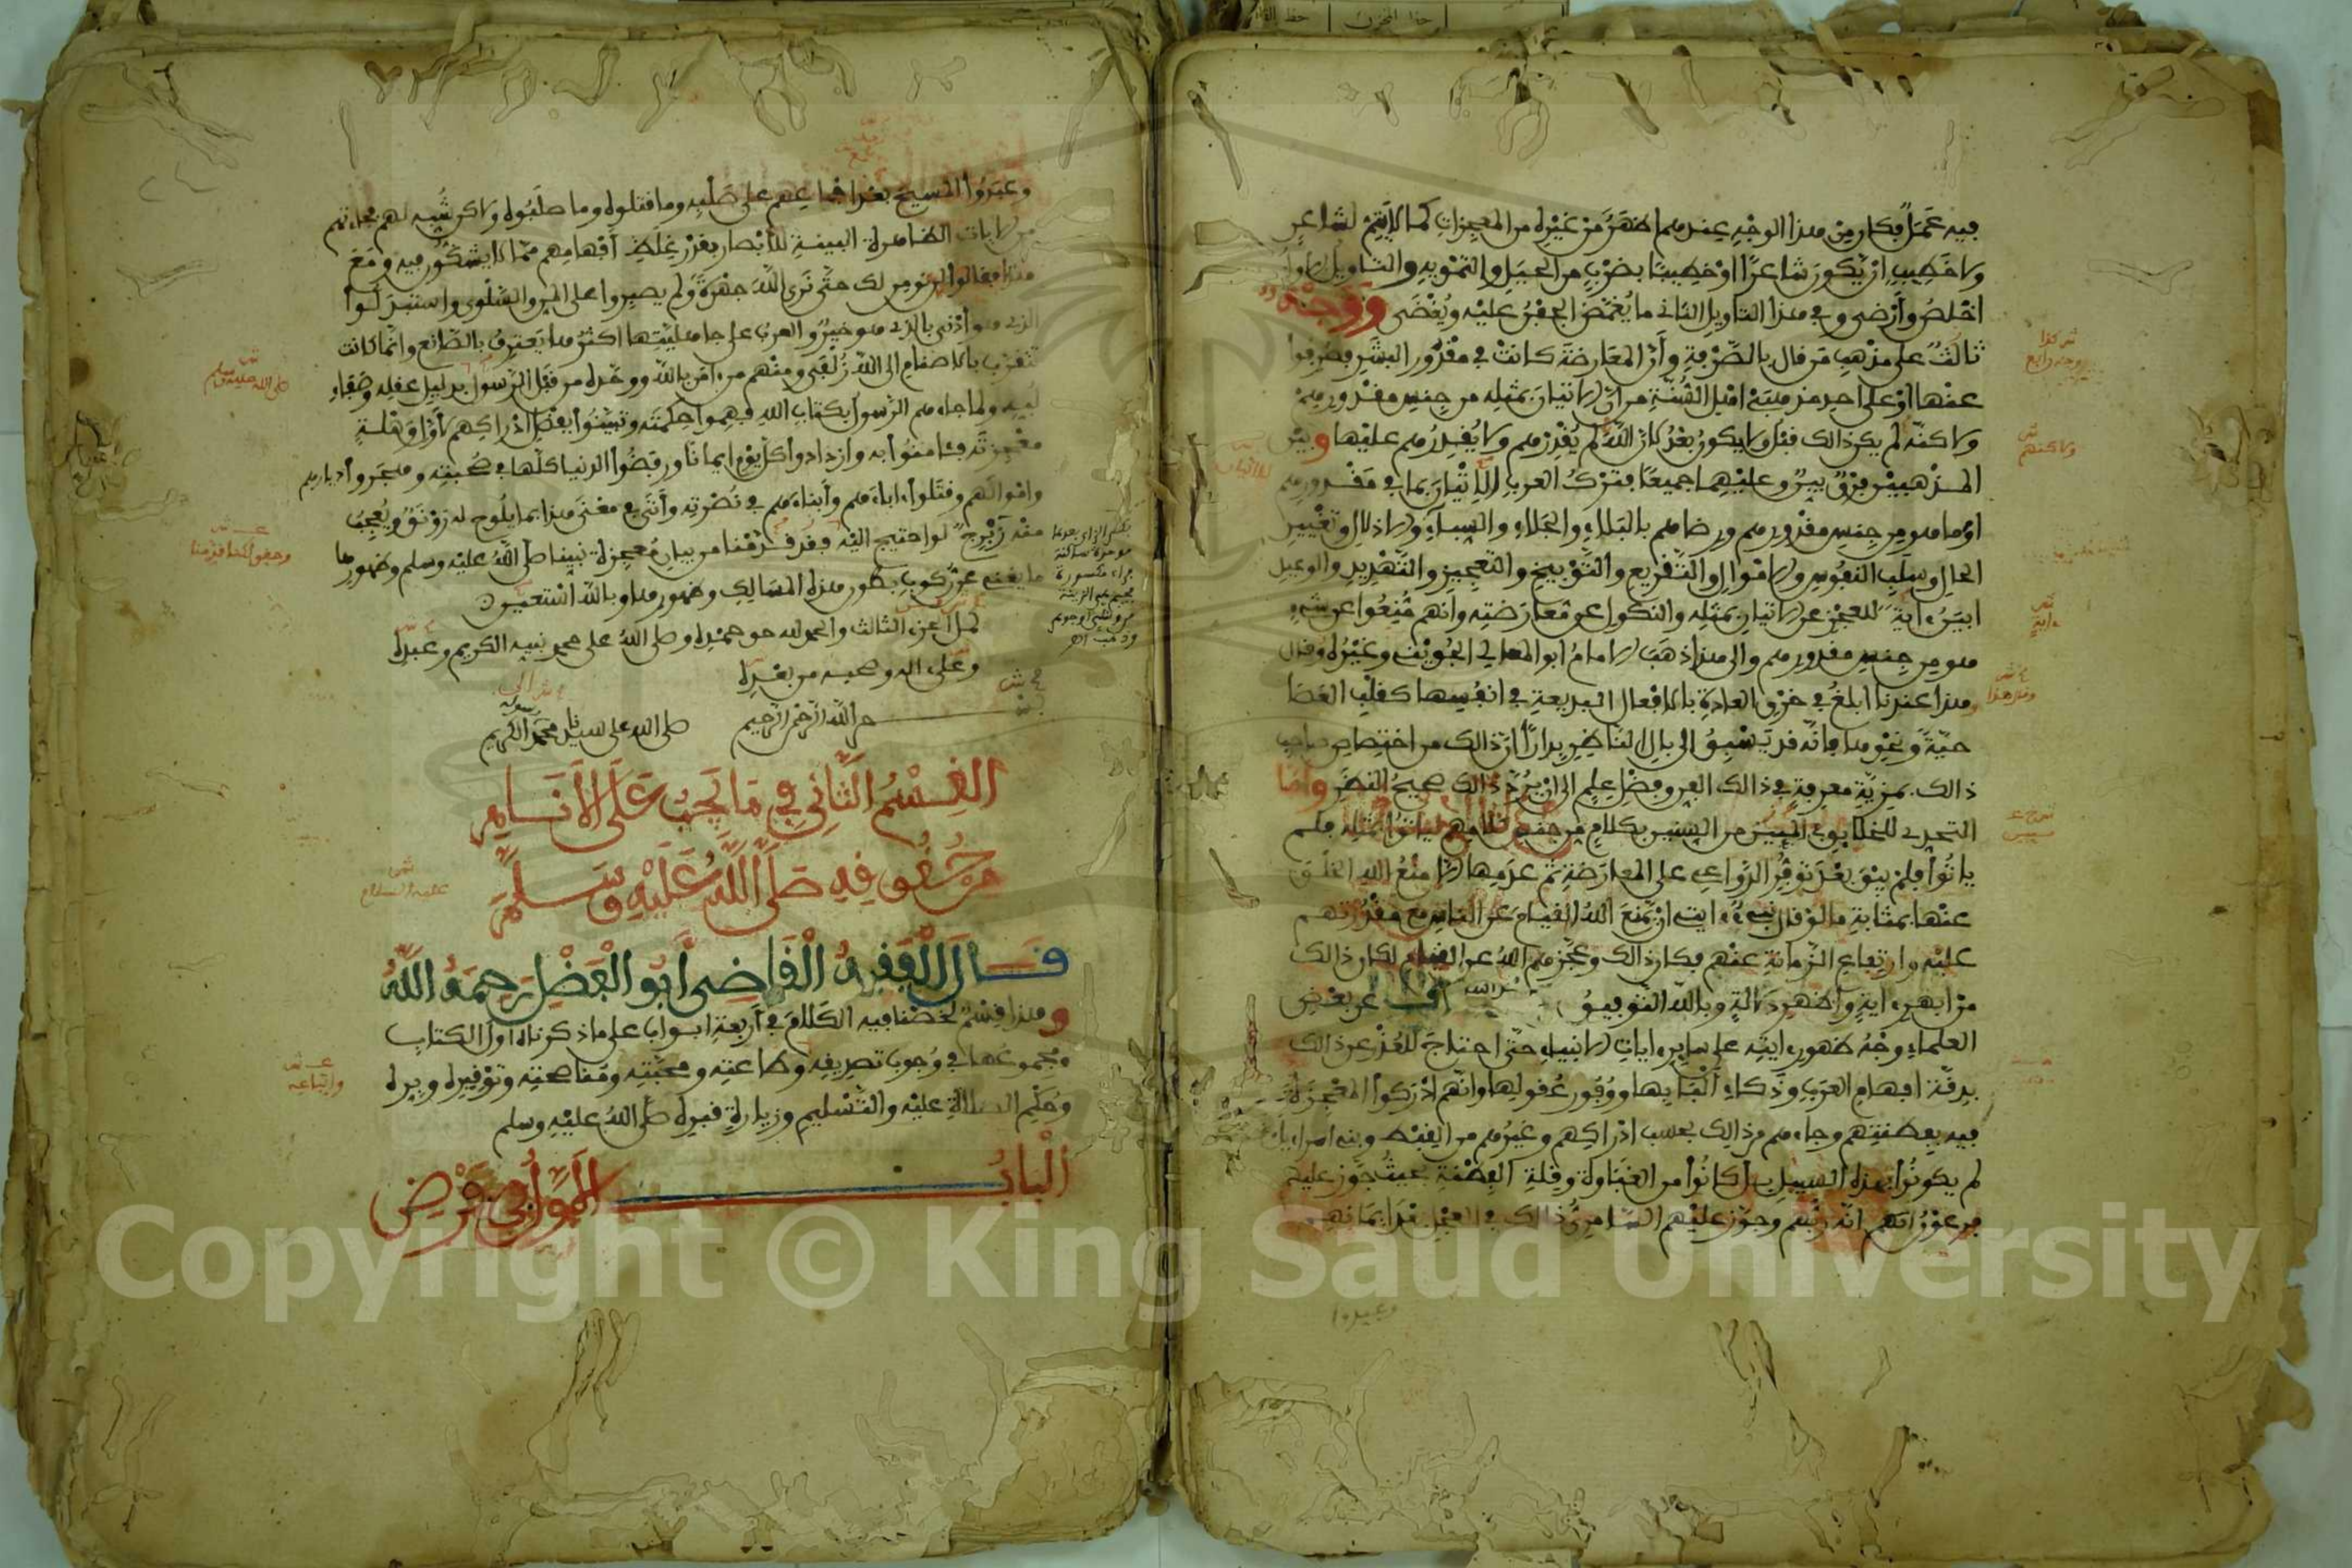 فيه عملا فكان من هذا الوجه عندهم اظهر من غيره من المعجزات كما لا يتم لشاعر
ولا خطيب ان يكون شاعرا او خطيبا بضرب من الحيل والتمويه والتاويل الاول
اخلص وأرضى وفي هذا التاويل الثاني ما يغمض الجفن عليه ويغضى ووجه
ثالث على مذهب من قال بالصرفة وأن المعارضة كانت في مقدور البشر فصرفوا
عنها او على احد مذهبي اهل السنة من ان الاتيان بمثله من جنس مقدورهم
ولاكنه لم يكن ذالك قبل ولا يكون بعد لان الله لم يقدرهم ولا يقدرهم عليها وبين
المذهبين فرق بين وعليهما جميعا فترك العرب الاتيان بما في مقدورهم
او ما هو من جنس مقدورهم ورضاهم بالبلاء والجلاء والسباء والاذلال وتغيير
الحال وسلب النفوس والاموال والتقريع والتوبيخ والتعجيز والتهديد والوعيد
ابين ءاية للعجز عن الاتيان بمثله والنكول عن معارضته وانهم منعوا عن شيء
هو من جنس مقدورهم والى هذا ذهب الامام ابو المعالي الجويني وغيره وقال
وهذا عندنا ابلغ في خرق العادة بالافعال البديعة في انفسها كقلب العصا
حية ونحوها فانه قد يسبق الى بال الناظر بدارا ان ذالك من اختصاص صاحب
ذالك بمزية معرفة في ذالك الفن وفضل علم الى ان يرد ذالك صحيح النظر واما
التحدي للخلايق في المئين من السنين بكلام من جنس كلامهم لياتوا بمثله فلم
ياتوا فلم يبق بعد توفر الدواعي على المعارضة ثم عدمها الا منع الله الخلق
عنها بمثابة ما لو قال نبيء ءايتي ان يمنع الله القيام عن الناس مع مقدرتهم
عليه وارتفاع الزمانة عنهم فكان ذالك وعجزهم الله عن القيام لكان ذالك
من ابهر ءاية وأظهر دلالة وبالله التوفيق عن بعض
العلماء وجه ظهور ءايته على ساير ءايات الانبياء حتى احتاج للعذر عن ذالك
بدقة افهام العرب وذكاء ألبابها ووفور عقولها وانهم ادركوا المعجزة
فيه بفطنتهم وجاءهم من ذالك بحسب ادراكهم وغيرهم من القبط وبني اسراءيل
لم يكونوا بهذه السبيل بل كانوا من الغباوة وقلة الفطنة بحيث جوز عليهم
فرعون انهم انه ربهم وجوز عليهم السامري ذالك في العجل بعد ايمانهم
وعبدوا
شر كذا
ووجه رابع
ولاكنهم
وعبدوا المسيح بعد اجماعهم على صلبه وما قتلوه وما صلبوه ولاكن شبه لهم فجاءتهم
من الايات الظاهرة البينة للابصار بقدر غلظ أفهامهم مما لا يشكون فيه ومع
هذا فقالوا لن نومن لك حتى نرى الله جهرة ولم يصبروا على المن والسلوى واستبدلوا
الذي هو أدنى بالذي هو خير والعرب على جاهليتها اكثرها يعترف بالصانع وانما كانت
تتقرب بالاصنام الى الله زلفى ومنهم من ءامن بالله وحده من قبل الرسول بدليل عقله وصفاء
لبه ولما جاءهم الرسول بكتاب الله فهموا حكمته وتبينوا بفضل ادراكهم لاول وهلة
معجزته فئامنوا به وازدادوا كل يوم ايمانا ورفضوا الدنيا كلها في صحبته وهجروا ديارهم
واموالهم وقتلوا ءاباءهم وأبناءهم في نصرته وأتى في معنى هذا بما يلوح له رونق ويعجب
منه زبرج لو احتيج اليه فقد قدمنا من بيان معجزة نبينا صلى الله عليه وسلم وظهورها
ما يغني عن ركوب بطون هذه المسالك وظهورها وبالله استعين
كمل الجزء الثالث والحمد لله حق حمده وصلى الله على محمد نبيه الكريم وعبده
وعلى اله وصحبه من بعده
بسم الله الرحمن الرحيم صلى الله على سيدنا محمد رسوله الكريم
القسم الثاني في ما يجب على الأنام
من حقوقه صلى الله عليه وسلم
قال الفقيه القاضي أبو الفضل رحمه الله
وهذا قسم لخصنا فيه الكلام في أربعة ابواب على ما ذكرناه اول الكتاب
ومجموعها في وجوب تصديقه وطاعته ومحبته ومناصحته وتوقيره وبره
وحكم الصلاة عليه والتسليم وزيارة قبره صلى الله عليه وسلم
الباب الاول في فرض
صلى الله عليه وسلم
عليه السلام
واتباعه
Copyright © King Saud University